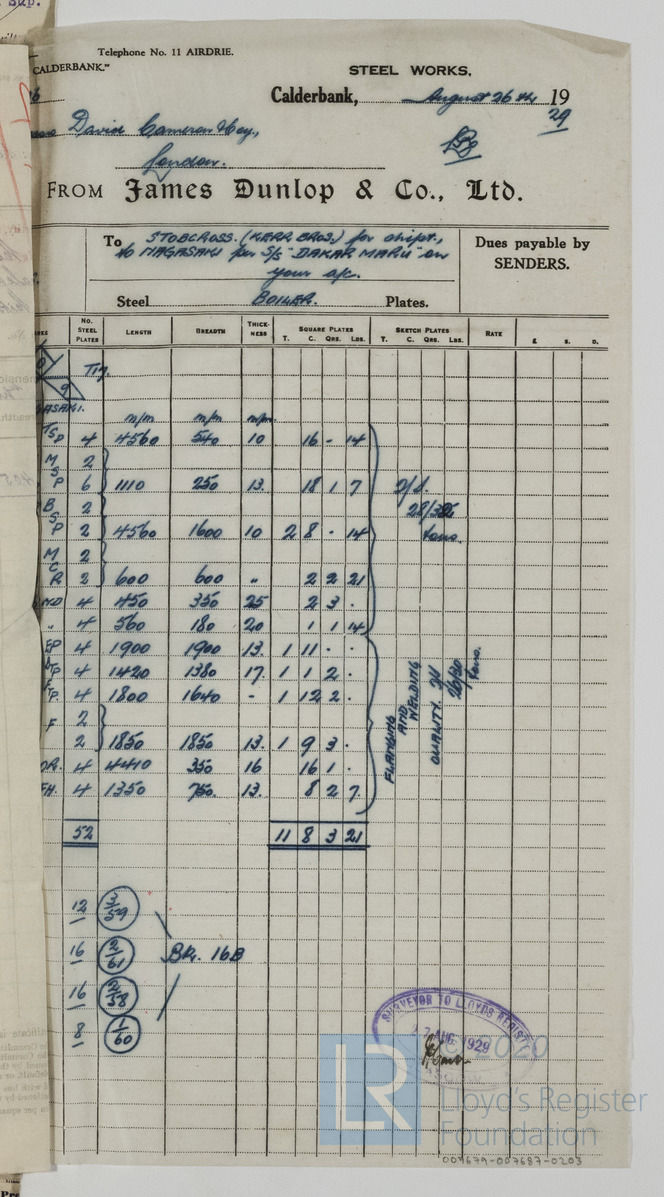 Telephone No. 11 AIRDRIE.
CALDERBANK."
STEEL WORKS,
Calderbank, August 26th 19 29
David Cameron Hay,
London.
FROM James Dunlop & Co., Ltd.
To STOBCROSS. (KERR BROS.) for shipt.,
to NAGASAKI per S/S "DAKAR MARU" on
your a/c.
Dues payable by
SENDERS.
Steel BOILER. Plates.
NO. STEEL PLATES LENGTH BREADTH THICKNESS SQUARE PLATES SKETCH PLATES RATE £ S. D.
T. C. QRS. LBS. T. C. QRS. LBS.
9
ASAKI.
m/m m/m m/m
TSP 4 4560 540 10 16 - 14
M 2
S
P 6 1110 250 13. 18 1 7
B 2
S
P 2 4560 1600 10 2 8 . 14
M 2
C
R 2 600 600 " 2 2 21
ND 4 450 350 25 2 3 .
" 4 560 180 20 1 1 14
EP 4 1900 1900 13. 1 11 . .
TP 4 1420 1380 17. 1 1 2 .
TP. 4 1800 1640 - 1 12 2 .
F 2
2 1850 1850 13. 1 9 3 .
DR. 4 4410 350 16 16 1 .
FH. 4 1350 750. 13. 8 2 7
28/32 tons.
FLANGING
AND
WELDING
QUALITY.
26/30
tons.
52 11 8 3 21
12 3/59
16 2/61 BK. 16B
16 2/58
8 1/60
SURVEYOR TO LLOYDS REGIS
27 AUG 1929
© 2020
LR
Lloyd's Register
Foundation
007679-007687-0203